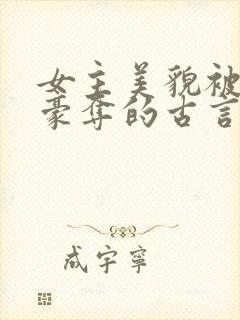 女主美貌被
豪夺的古言
成宇宁